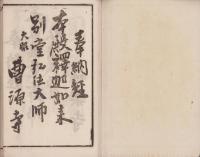 奉納経
本殿釋迦如来
別堂弘法大師
大船
曹源寺